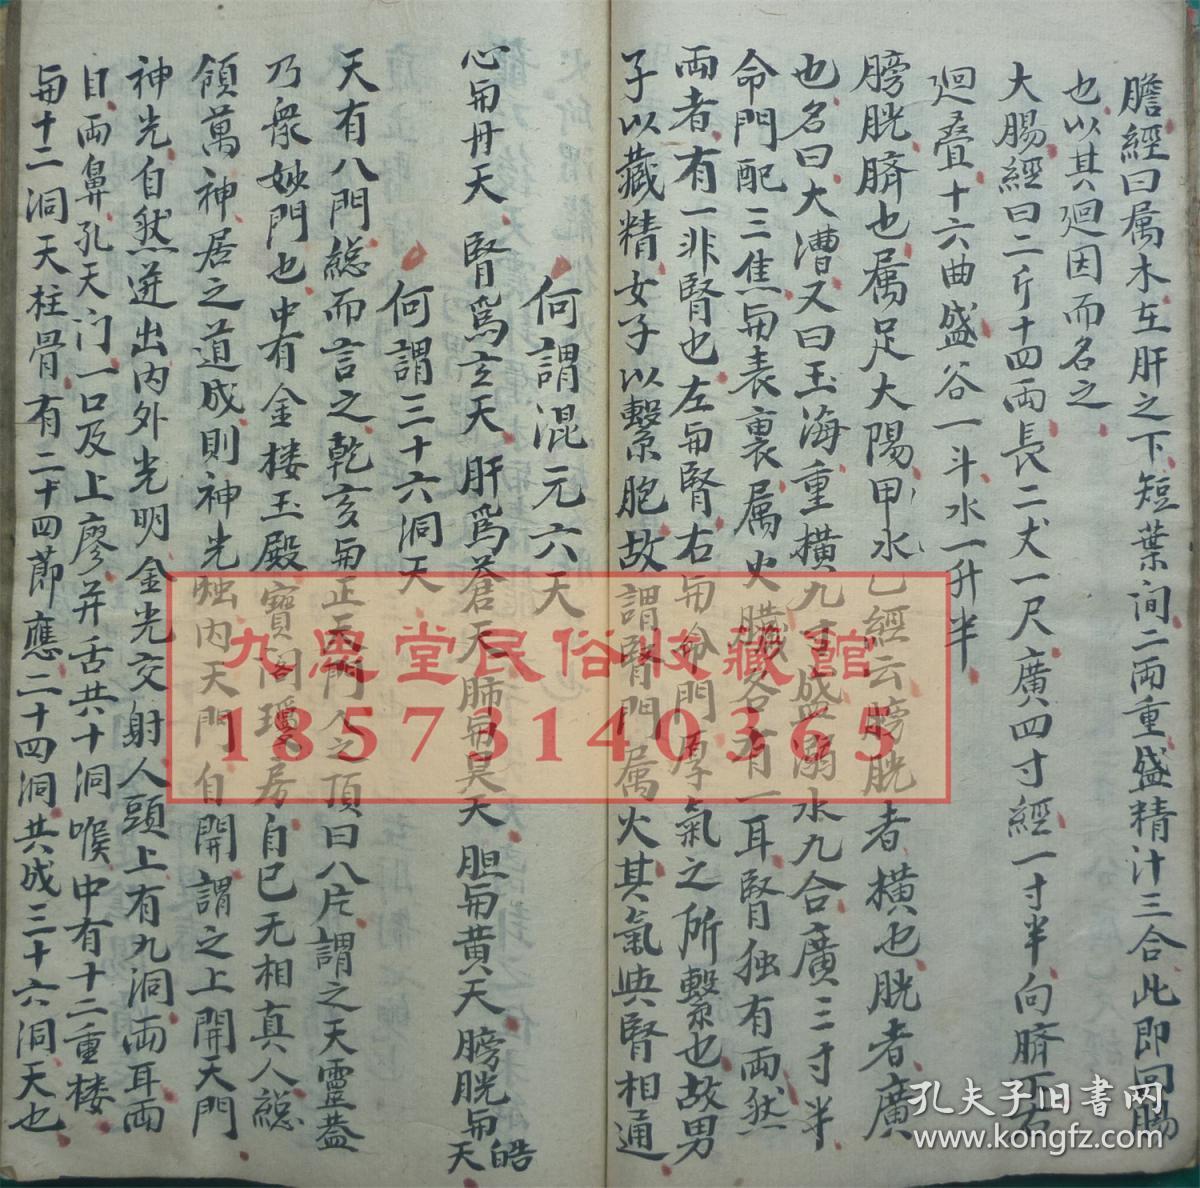 膽經曰属木在肝之下短葉间二兩重盛精汁三合此即回腸
也以其廻因而名之
大腸經曰二斤十四兩長二丈一尺廣四寸經一寸半向臍下右
廻疊十六曲盛谷一斗水一升半
膀胱臍也属足大陽甲水乙經云膀胱者横也胱者廣
也名曰大漕又曰玉海重横九寸盛溺水九合廣三寸半
命門配三焦為表裏属火臟各有一耳腎独有两然
兩者有一非腎也左為腎右為命門厚氣之所繫也故男
子以藏精女子以繫胞故謂腎門属火其氣與腎相通
何謂混元六天
心為丹天 腎爲玄天 肝爲蒼天肺為昊天 胆為黄天 膀胱為皓天
何謂三十六洞天
天有八門総而言之乾亥為正天門人之頂曰八片謂之天靈蓋
乃衆妙門也中有金楼玉殿寶阁瓊房自己无相真人総
領萬神居之道成則神光触内天門自開謂之上開天門
神光自然迸出内外光明金光交射人頭上有九洞兩耳兩
目两鼻孔天门一口及上廖并舌共十洞喉中有十二重楼
為十二洞天柱骨有二十四莭應二十四洞共成三十六洞天也
九恩堂民俗收藏館
18573140365
孔夫子旧书网
www.kongfz.com